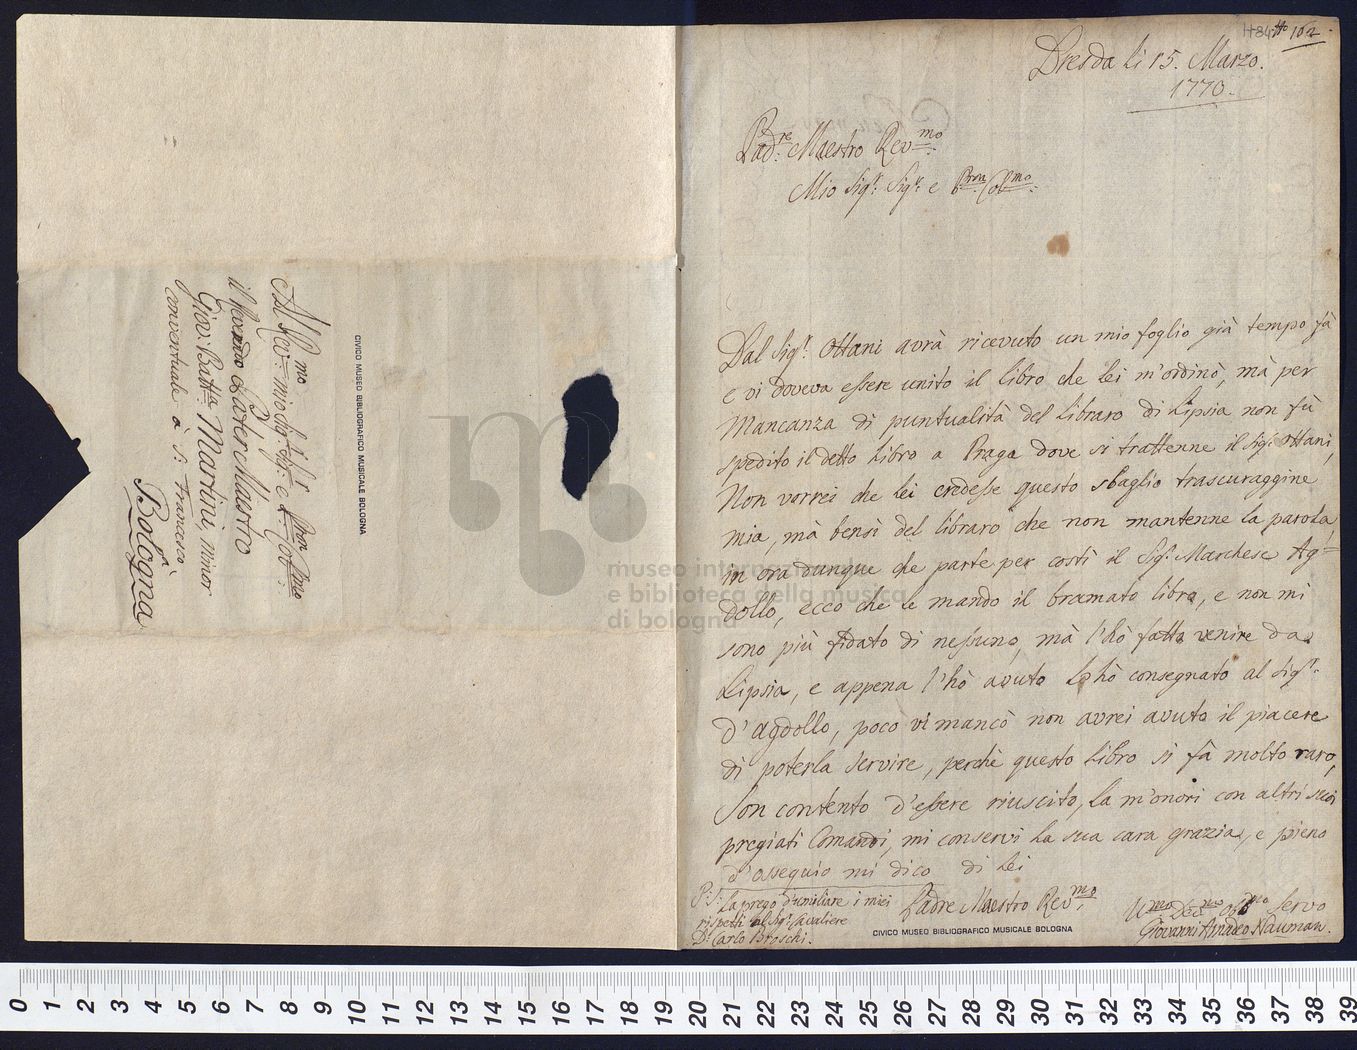 Al Rev:mo mio Sig:r Sig:r e Pron Col:mo
il Reverendo Pater Maestro
Giov: Batta Martini, minor
conventuale à S: Francesco
Bologna
CIVICO MUSEO BIBLIOGRAFICO MUSICALE BOLOGNA
museo internazionale
e biblioteca della musica
di bologna
H84 162
Dresda li 15. Marzo.
1770.
Pad:re Maestro Rev:mo
Mio Sig:r Sig:r e Pron Col:mo
Dal Sig:r Ottani avrà ricevuto un mio foglio già tempo fà
e vi doveva essere unito il libro che lei m'ordinò, mà per
Mancanza di puntualità del libraro di Lipsia non fù
spedito il detto libro a Praga dove si trattenne il Sig: Ottani,
Non vorrei che lei credesse questo sbaglio trascuraggine
mia, mà bensì del libraro che non mantenne la parola,
in ora dunque che parte per costì il Sig: Marchese Ag=
dollo, ecco che le mando il bramato libro, e non mi
sono più fidato di nessuno, mà l'hò fatto venire da
Lipsia, e appena l'hò avuto lo hò consegnato al Sig:r
d'agdollo, poco vi mancò non avrei avuto il piacere
di poterla servire, perchè questo libro si fà molto raro,
Son contento d'essere riuscito, la m'onori con altri suoi
pregiati Comandi, mi conservi la sua cara grazia, e pieno
d'ossequio mi dico di lei
Padre Maestro Rev:mo
P:S: La prego d'umiliare i miei
rispetti al Sig: Cavaliere
D: Carlo Broschi.
U:mo Dev:mo Obb:mo Servo
Giovanni Amadeo Nauman.
CIVICO MUSEO BIBLIOGRAFICO MUSICALE BOLOGNA
0 1 2 3 4 5 6 7 8 9 10 11 12 13 14 15 16 17 18 19 20 21 22 23 24 25 26 27 28 29 30 31 32 33 34 35 36 37 38 39